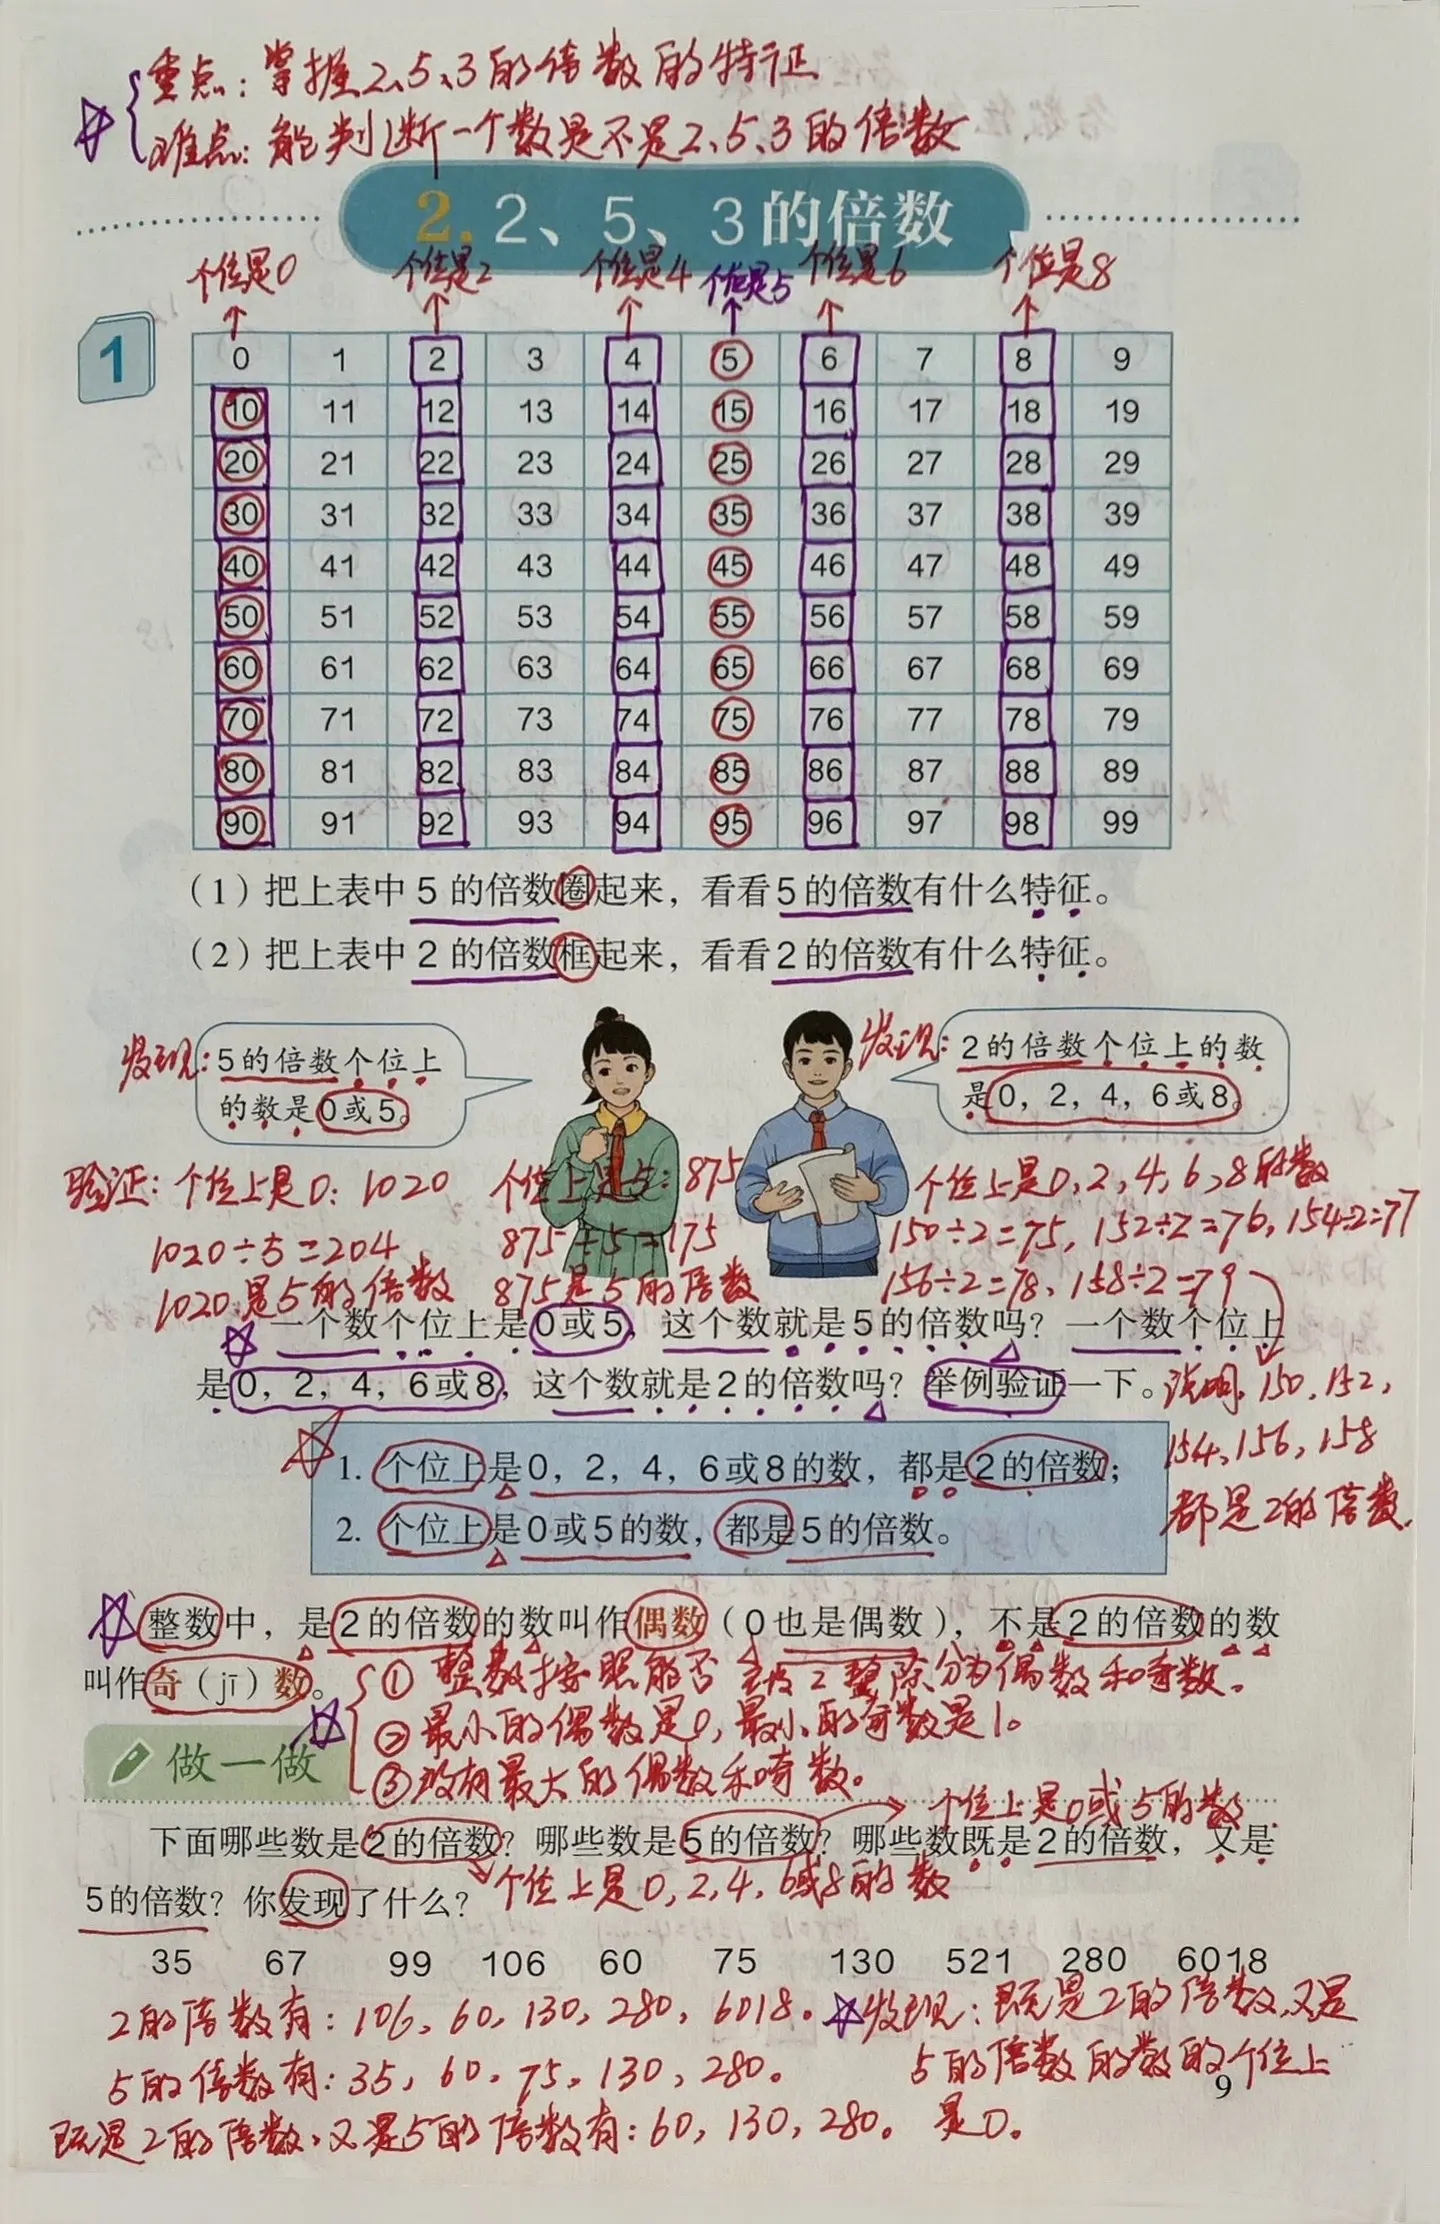 重点：掌握2、5、3的倍数的特征
难点：能判断一个数是不是2、5、3的倍数
2. 2、5、3的倍数
个位是0 个位是2 个位是4 个位是5 个位是6 个位是8
1
0 1 2 3 4 5 6 7 8 9
10 11 12 13 14 15 16 17 18 19
20 21 22 23 24 25 26 27 28 29
30 31 32 33 34 35 36 37 38 39
40 41 42 43 44 45 46 47 48 49
50 51 52 53 54 55 56 57 58 59
60 61 62 63 64 65 66 67 68 69
70 71 72 73 74 75 76 77 78 79
80 81 82 83 84 85 86 87 88 89
90 91 92 93 94 95 96 97 98 99
（1）把上表中5的倍数圈起来，看看5的倍数有什么特征。
（2）把上表中2的倍数框起来，看看2的倍数有什么特征。
发现：
5的倍数个位上
的数是0或5。
发现：
2的倍数个位上的数
是0，2，4，6或8。
验证：个位上是0：1020
1020÷5=204
1020是5的倍数
个位上是5：875
875÷5=175
875是5的倍数
个位上是0，2，4，6，8的数
150÷2=75，152÷2=76，154÷2=77
156÷2=78，158÷2=79
一个数个位上是0或5，这个数就是5的倍数吗？一个数个位上
是0，2，4，6或8，这个数就是2的倍数吗？举例验证一下。
说明，150，152，
154、156，158
都是2的倍数．
1. 个位上是0，2，4，6或8的数，都是2的倍数；
2. 个位上是0或5的数，都是5的倍数。
整数中，是2的倍数的数叫作偶数（0也是偶数），不是2的倍数的数
叫作奇（jī）数。
①整数按照能否被2整除分为偶数和奇数。
②最小的偶数是0，最小的奇数是1。
③没有最大的偶数和奇数。
做一做
个位上是0或5的数
下面哪些数是2的倍数？哪些数是5的倍数？哪些数既是2的倍数，又是
5的倍数？你发现了什么？
个位上是0，2，4，6或8的数
35 67 99 106 60 75 130 521 280 6018
2的倍数有：106，60，130，280，6018。
5的倍数有：35，60，75，130，280。
既是2的倍数，又是5的倍数有：60，130，280。
发现：既是2的倍数，又是
5的倍数的数的个位上
是0。
9